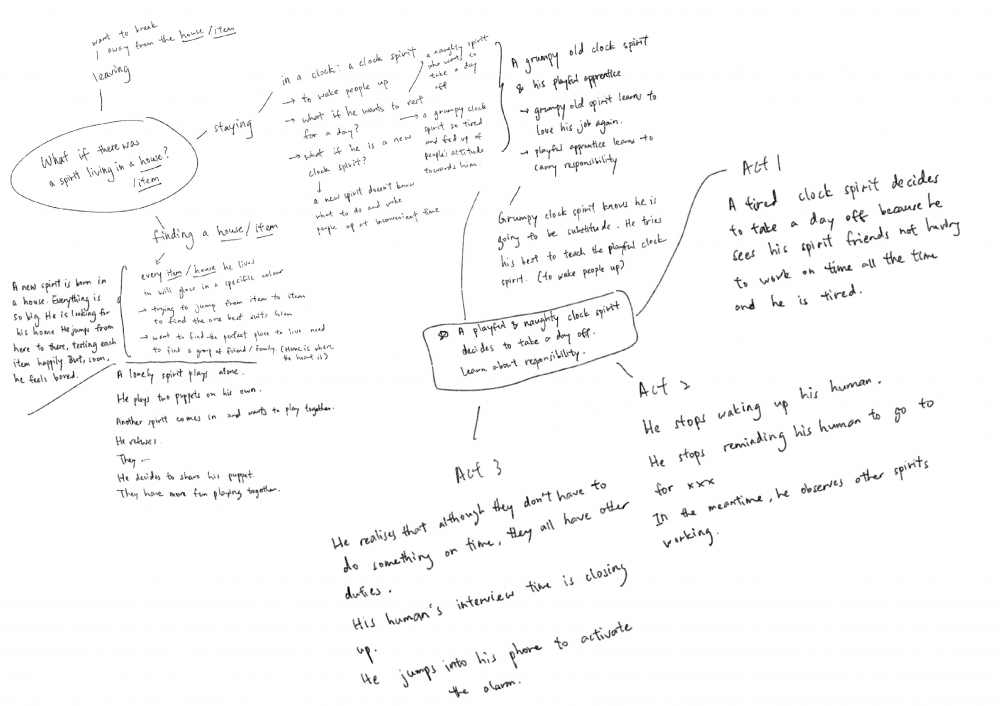 want to break
away from the house / item
leaving
What if there was
a spirit living in a house?
/item
staying
in a clock: a clock spirit
→ to wake people up
→ what if he wants to rest
for a day?
→ what if he is a new
clock spirit?
a new spirit doesn't know
what to do and wake
people up at inconvenient time
a naughty spirit
who wants to
take a day
off
→ a grumpy clock
spirit so tired
and fed up of
people's attitude
towards him.
A grumpy old clock spirit
& his playful apprentice
→ grumpy old spirit learns to
love his job again.
→ playful apprentice learns to
carry responsibility
Grumpy clock spirit knows he is
going to be substitude. He tries
his best to teach the playful clock
spirit. (to wake people up)
finding a house / item
every item / house he lives
in will glow in a specific colour
→ trying to jump from item to item
to find the one best suits him
→ want to find the perfect place to live need
to find a group of friend / family. (Home is where
the heart is)
A new spirit is born in
a house. Everything is
so big. He is looking for
his home. He jumps from
here to there, testing each
item happily. But, soon,
he feels bored.
A lonely spirit plays alone.
He plays two puppets on his own.
Another spirit comes in and wants to play together.
He refuses.
They ...
He decides to share his puppet.
They have more fun playing together.
A playful & naughty clock spirit
decides to take a day off.
learn about responsibility.
Act 1
A tired clock spirit decides
to take a day off because he
sees his spirit friends not having
to work on time all the time
and he is tired.
Act 2
He stops waking up his human.
He stops reminding his human to go to
for xxx
In the meantime, he observes other spirits
working.
Act 3
He realises that although they don't have to
do something on time, they all have other
duties.
His human's interview time is closing
up.
He jumps into his phone to activate
the alarm.